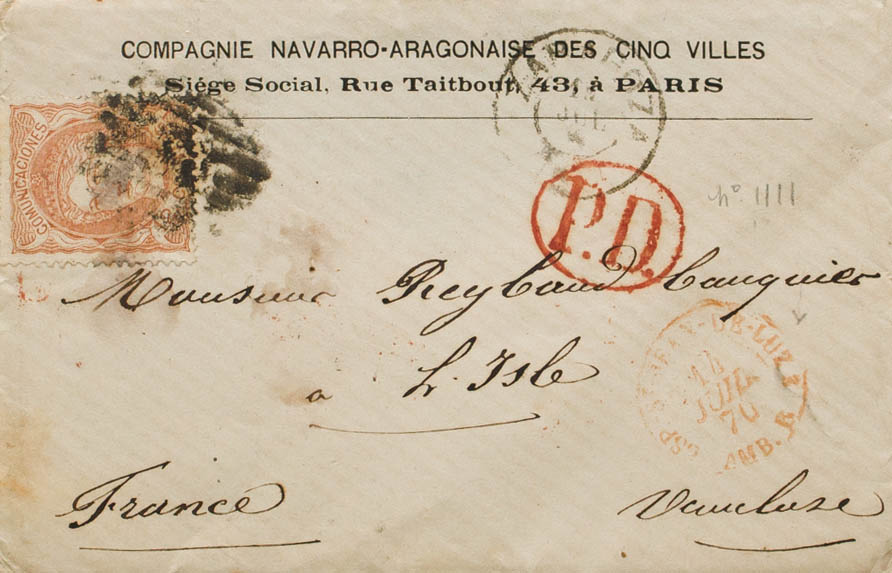 COMPAGNIE NAVARRO-ARAGONAISE DES CINQ VILLES
Siége Social, Rue Taitbout, 43, à PARIS
COMUNICACIONES
P.D.
No 1111
Monsieur Reybaud banquier
à L'Isle
ESP. ST-JEAN-DE-LUZ
14
JUIL
70
AMB. B
France
Vaucluse